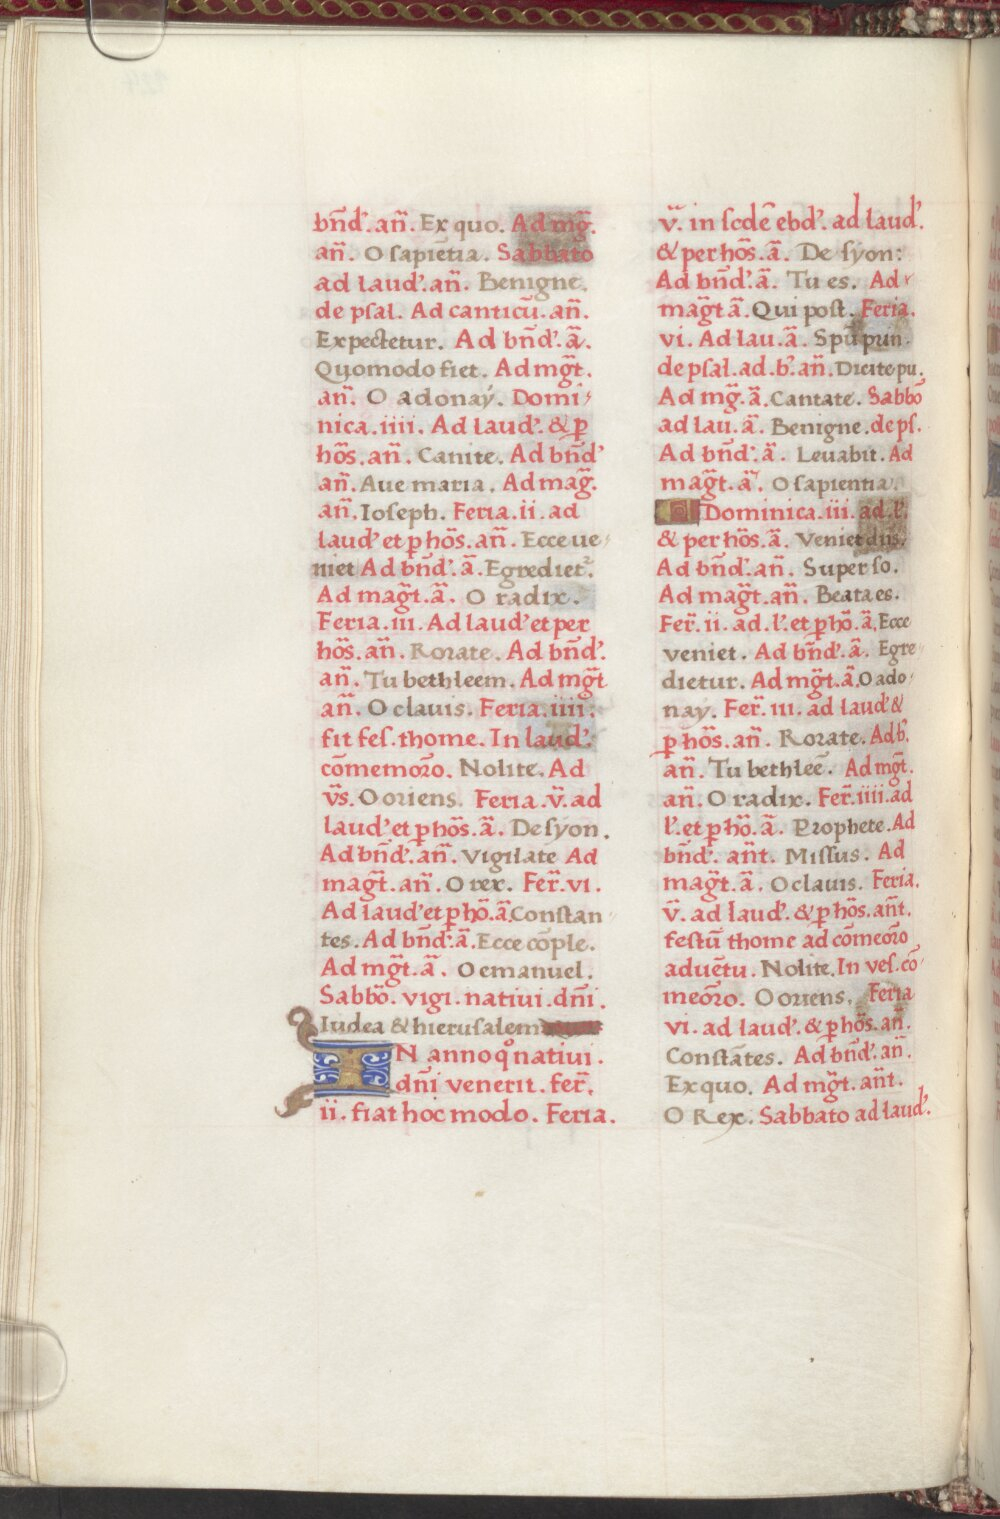 bn̄d'. an̄. Ex quo. Ad mḡ.
an̄. O sapiētia. Sabbato
ad laud'. an̄. Benigne.
de psal. Ad canticū. an̄.
Expectetur. Ad bn̄d'. ā.
Quomodo fiet. Ad mḡt.
an̄. O adonaẏ. Domi-
nica. iiii. Ad laud'. & p̱
hōs. an̄. Canite. Ad bn̄d'
an̄. Aue maria. Ad maḡ.
an̄. Ioseph. Feria. ii. ad
laud' et p̱ hōs. an̄. Ecce ue-
niet Ad bn̄d'. ā. Egrediet'.
Ad maḡt. ā. O radix.
Feria. iii. Ad laud' et per
hōs. an̄. Rorate. Ad bn̄d'.
an̄. Tu bethleem. Ad mḡt
an̄. O clauis. Feria. iiii.
fit fes. thome. In laud'.
cōmemorō. Nolite. Ad
v̄s. O oriens. Feria. v̄. ad
laud' et p̱ hōs. ā. De sẏon.
Ad bn̄d'. an̄. Vigilate Ad
maḡt. an̄. O rex. Fer̄. vi.
Ad laud' et p̱ hō. ā. Constan-
tes. Ad bn̄d'. ā. Ecce cōple.
Ad mḡt. ā. O emanuel.
Sabbō. vigi. natiui. dn̄i.
Iudea & hierusalem
IN anno qͦ natiui.
dn̄i venerit. fer̄.
ii. fiat hoc modo. Feria.
v̄. in scdē ebd'. ad laud'.
& per hōs. ā. De sẏon:
Ad bn̄d'. ā. Tu es. Ad
maḡt ā. Qui post. Feria.
vi. Ad lau. ā. Spū prin.
de psal. ad. b'. an̄. Dicite pu.
Ad mḡ. ā. Cantate. Sabbō
ad lau. ā. Benigne. de ps.
Ad bn̄d'. ā. Leuabit. Ad
maḡt. ā. O sapientia.
Dominica. iii. ad. l'.
& per hōs. ā. Veniet dn̄s.
Ad bn̄d'. an̄. Super so.
Ad maḡt. an̄. Beata es.
Fer̄. ii. ad. l'. et p̱ hō. ā. Ecce
veniet. Ad bn̄d'. ā. Egre-
dietur. Ad mḡt. ā. O ado-
naẏ. Fer̄. iii. ad laud' &
p̱ hōs. an̄. Rorate. Ad b'.
an̄. Tu bethleē. Ad mḡt.
an̄. O radix. Fer̄. iiii. ad
l'. et p̱ hō. ā. Prophete. Ad
bn̄d'. an̄t. Missus. Ad
maḡt. ā. O clauis. Feria.
v̄. ad laud'. & p̱ hōs. an̄t.
festū thome ad cōmeorō
aduētu. Nolite. In ves. cō-
meorō. O oriens. Feria
vi. ad laud'. & p̱ hōs. an̄.
Constātes. Ad bn̄d'. an̄.
Ex quo. Ad mḡt. an̄t.
O Rex. Sabbato ad laud'.